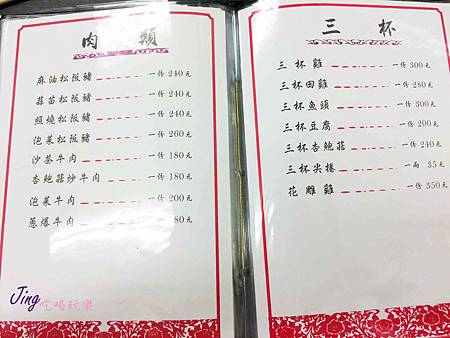 肉類
麻油松阪豬 一份 240元
蒜苗松阪豬 一份 240元
照燒松阪豬 一份 240元
泡菜松阪豬 一份 260元
沙茶牛肉 一份 180元
杏鮑菇炒牛肉 一份 180元
泡菜牛肉 一份 200元
蔥爆牛肉 一份 180元
三杯
三杯雞 一份 300元
三杯田雞 一份 280元
三杯魚頭 一份 300元
三杯豆腐 一份 200元
三杯杏鮑菇 一份 240元
三杯尖捲 一兩 35元
花雕雞 一份 350元
Jing吃喝玩樂